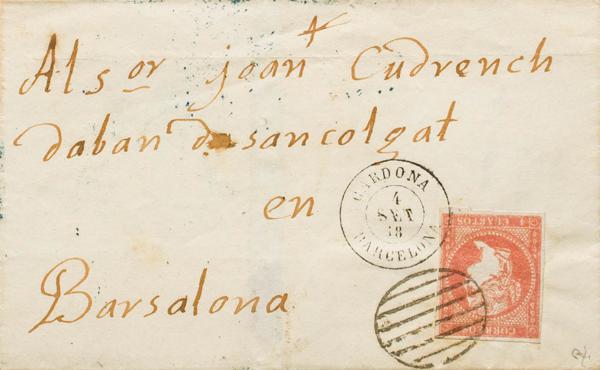 Al sor joan Cudrench
daban desancolgat
en
Barsalona
CARDONA
4
SET
18
BARCELONA
CORREOS
4 CUARTOS